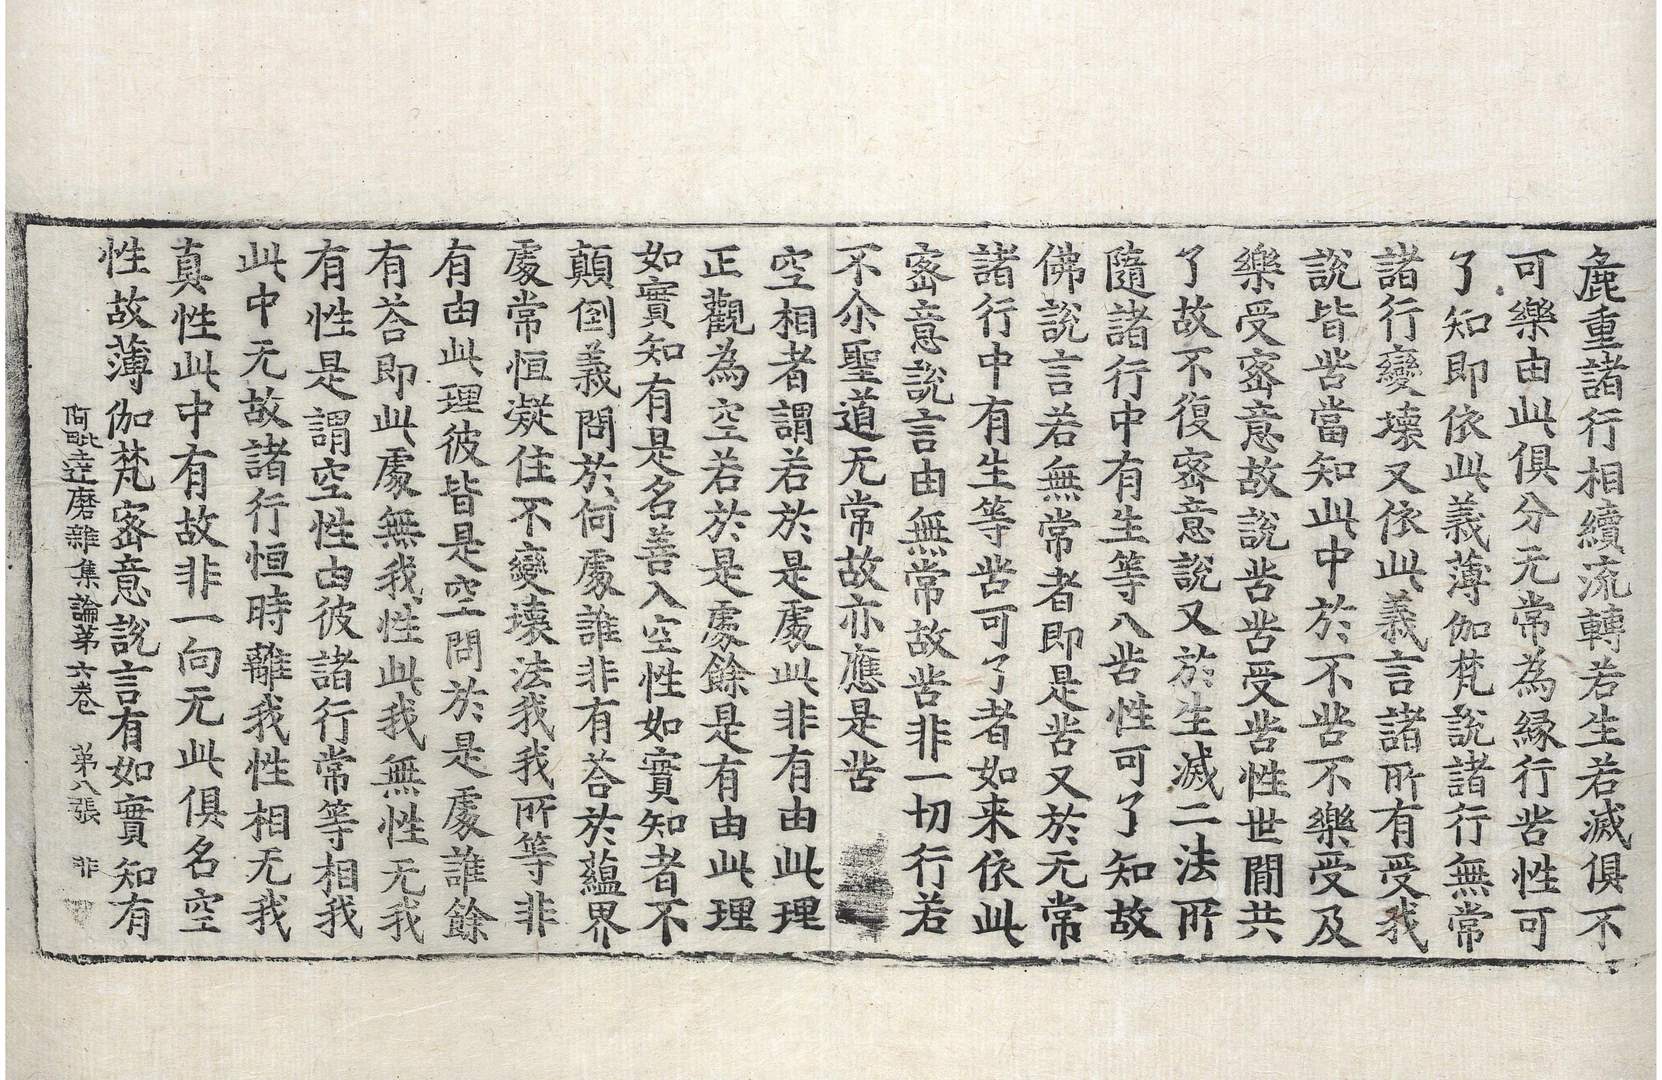 麁重諸行相續流轉若生若滅俱不
可樂由此俱分无常為縁行苦性可
了知即依此義薄伽梵說諸行無常
諸行變壞又依此義言諸所有受我
說皆苦當知此中於不苦不樂受及
樂受密意故說苦苦受苦性世間共
了故不復密意說又於生滅二法所
隨諸行中有生等八苦性可了知故
佛說言若無常者即是苦又於无常
諸行中有生等苦可了者如来依此
密意說言由無常故苦非一切行若
不尒聖道无常故亦應是苦
空相者謂若於是處此非有由此理
正觀為空若於是處餘是有由此理
如實知有是名善入空性如實知者不
顛倒義問於何處誰非有荅於蘊界
處常恒凝住不變壞法我我所等非
有由此理彼皆是空問於是處誰餘
有荅即此處無我性此我無性无我
有性是謂空性由彼諸行常等相我
此中无故諸行恒時離我性相无我
真性此中有故非一向无此俱名空
性故薄伽梵密意說言有如實知有
阿毗達磨雜集論第六卷 第八張 非